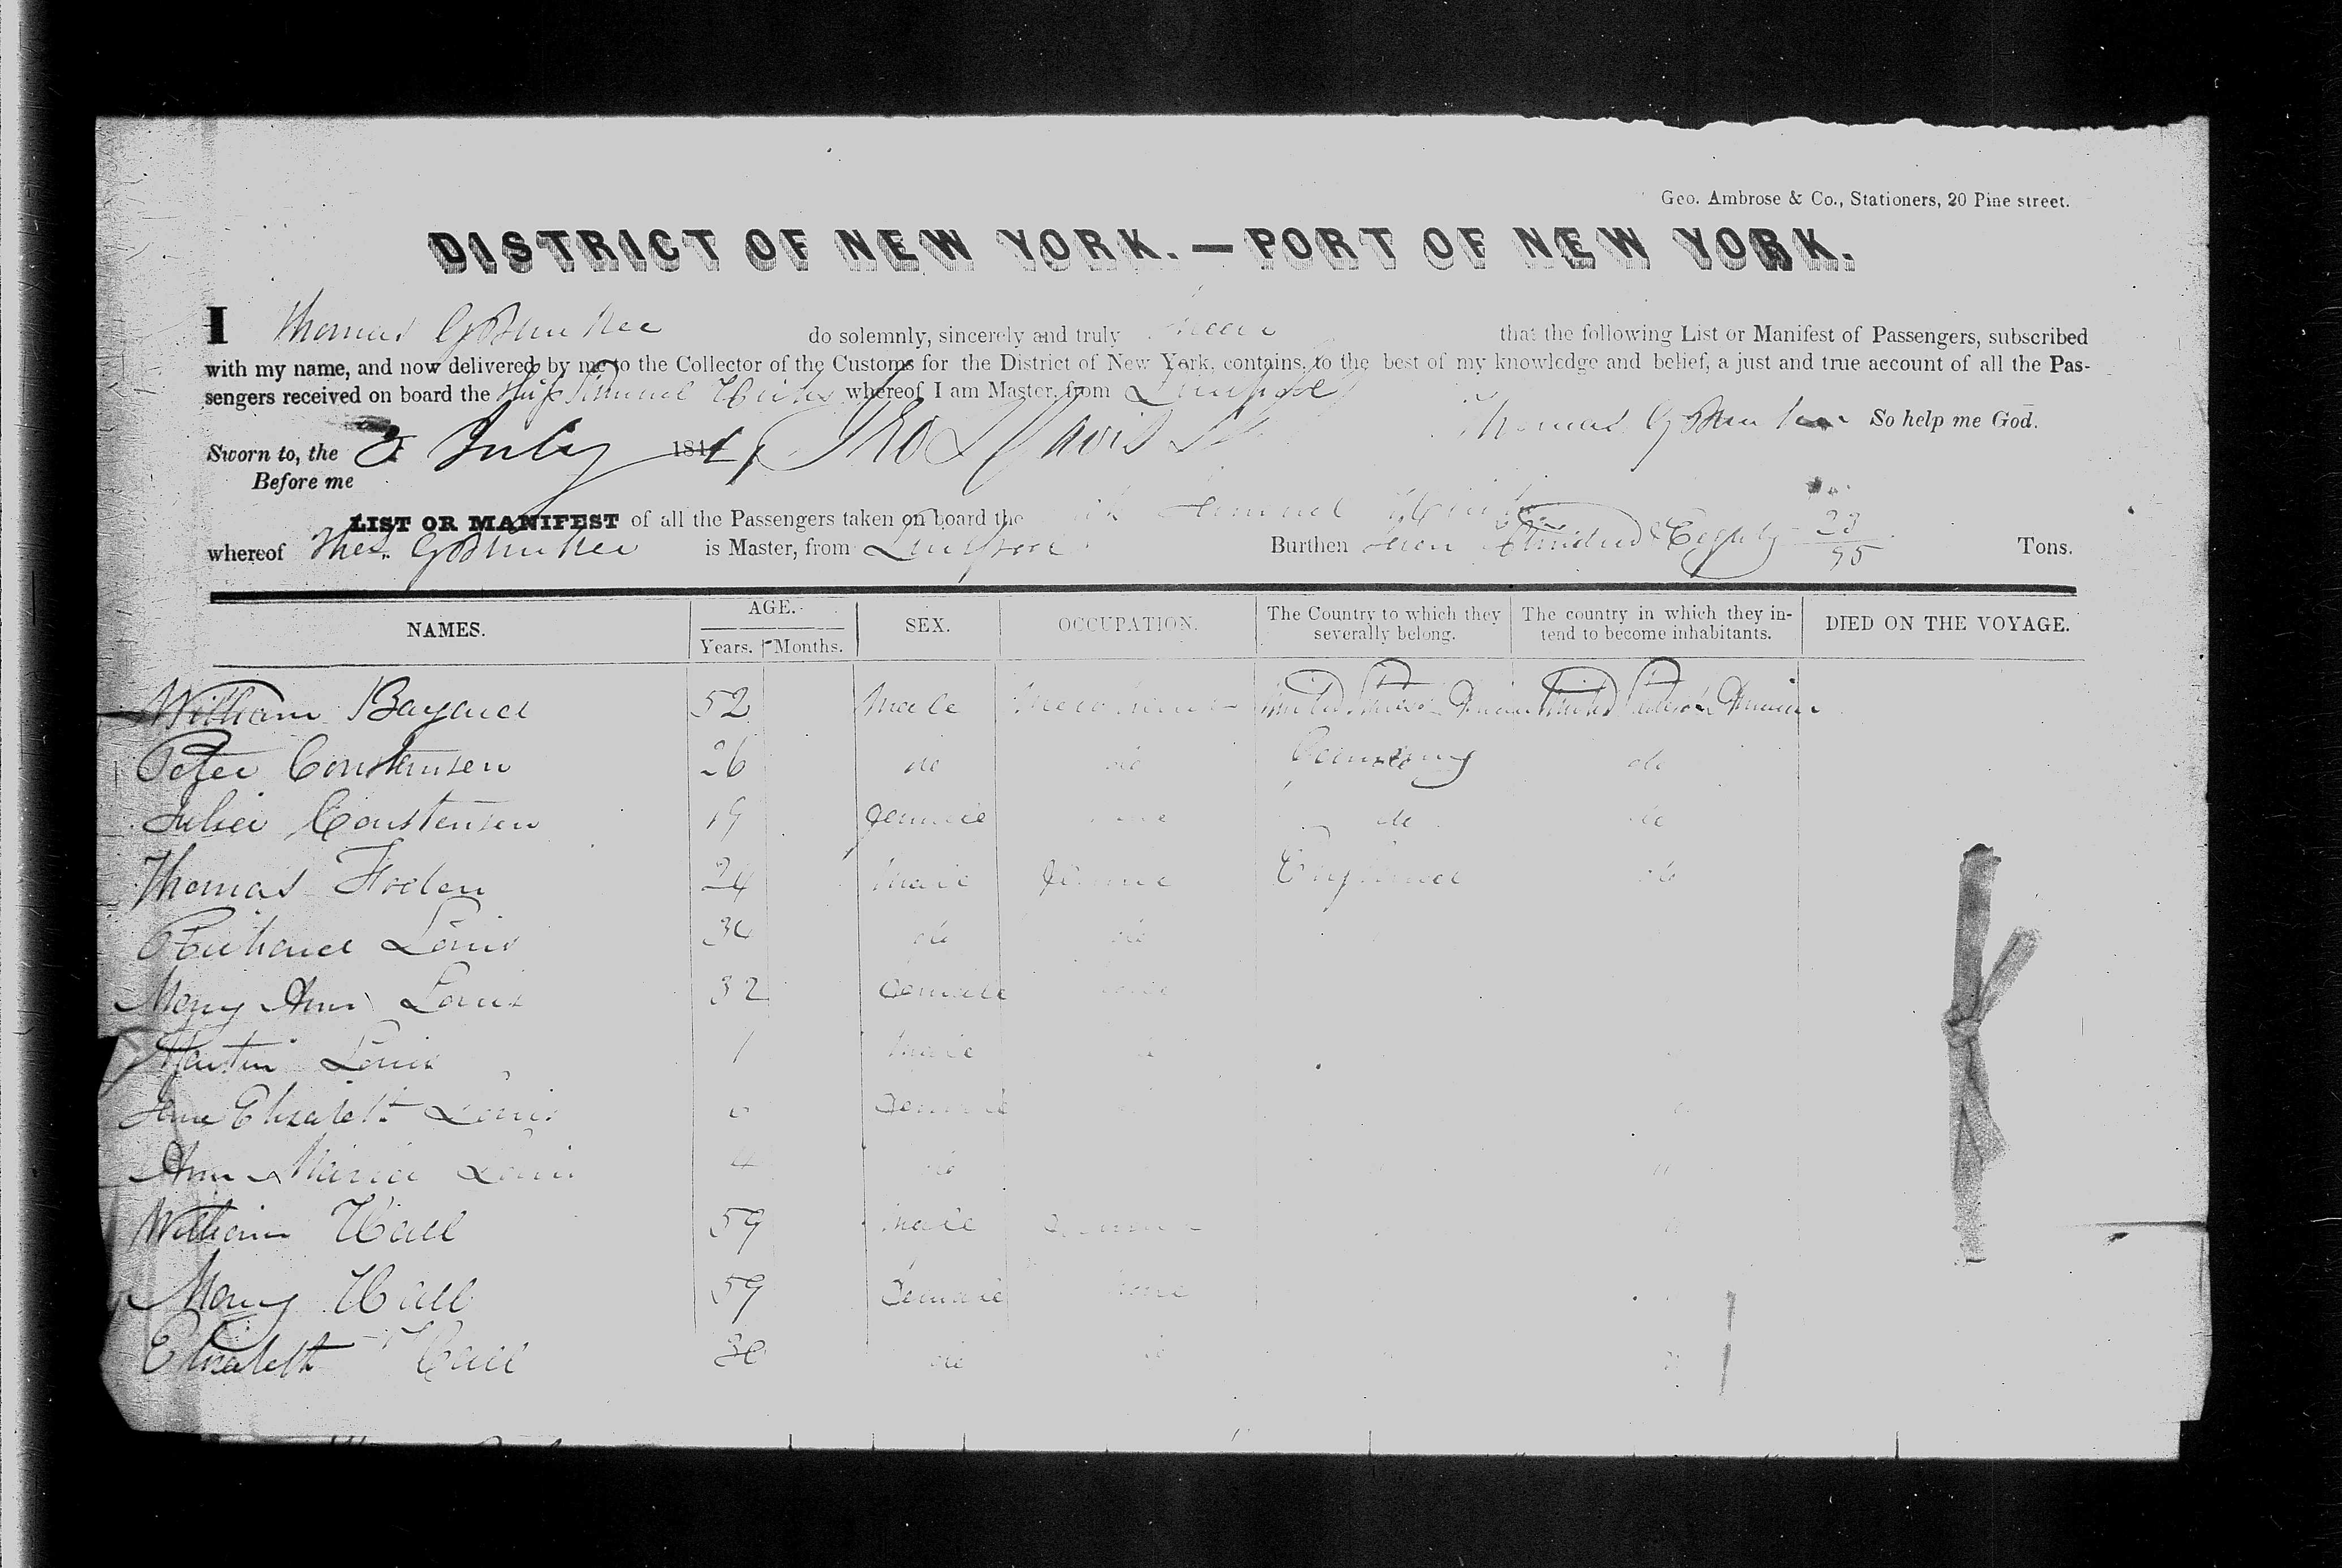 Geo. Ambrose & Co., Stationers, 20 Pine street.
DISTRICT OF NEW YORK.—PORT OF NEW YORK.
I Thomas G Bunker do solemnly, sincerely and truly swear that the following List or Manifest of Passengers, subscribed
with my name, and now delivered by me to the Collector of the Customs for the District of New York, contains, to the best of my knowledge and belief, a just and true account of all the Pas-
sengers received on board the Ship Samuel Hicks whereof I am Master, from Liverpool
Thomas G Bunker So help me God.
Sworn to, the 2 July 184
Before me
LIST OR MANIFEST of all the Passengers taken on board the Samuel Hicks
whereof Thos. G Bunker is Master, from Liverpool Burthen Hundred & Eighty 23/95 Tons.
NAMES. AGE. SEX. OCCUPATION. The Country to which they severally belong. The country in which they intend to become inhabitants. DIED ON THE VOYAGE.
Years. Months.
William Bayard 52 Male United States America United States America
Peter Constensen 26 do do Germany do
Constensen 19 Female do do
Thomas 24 Male England do
Richard Louis do do
Mary Ann Louis 32 Female
Martin Louis 1 Male
Jane Elizabeth Louis Female
Ann Maria Louis 4 do
William Hall 59 Male
Mary Hall 59 Female none
Elizabeth Hall 30 do